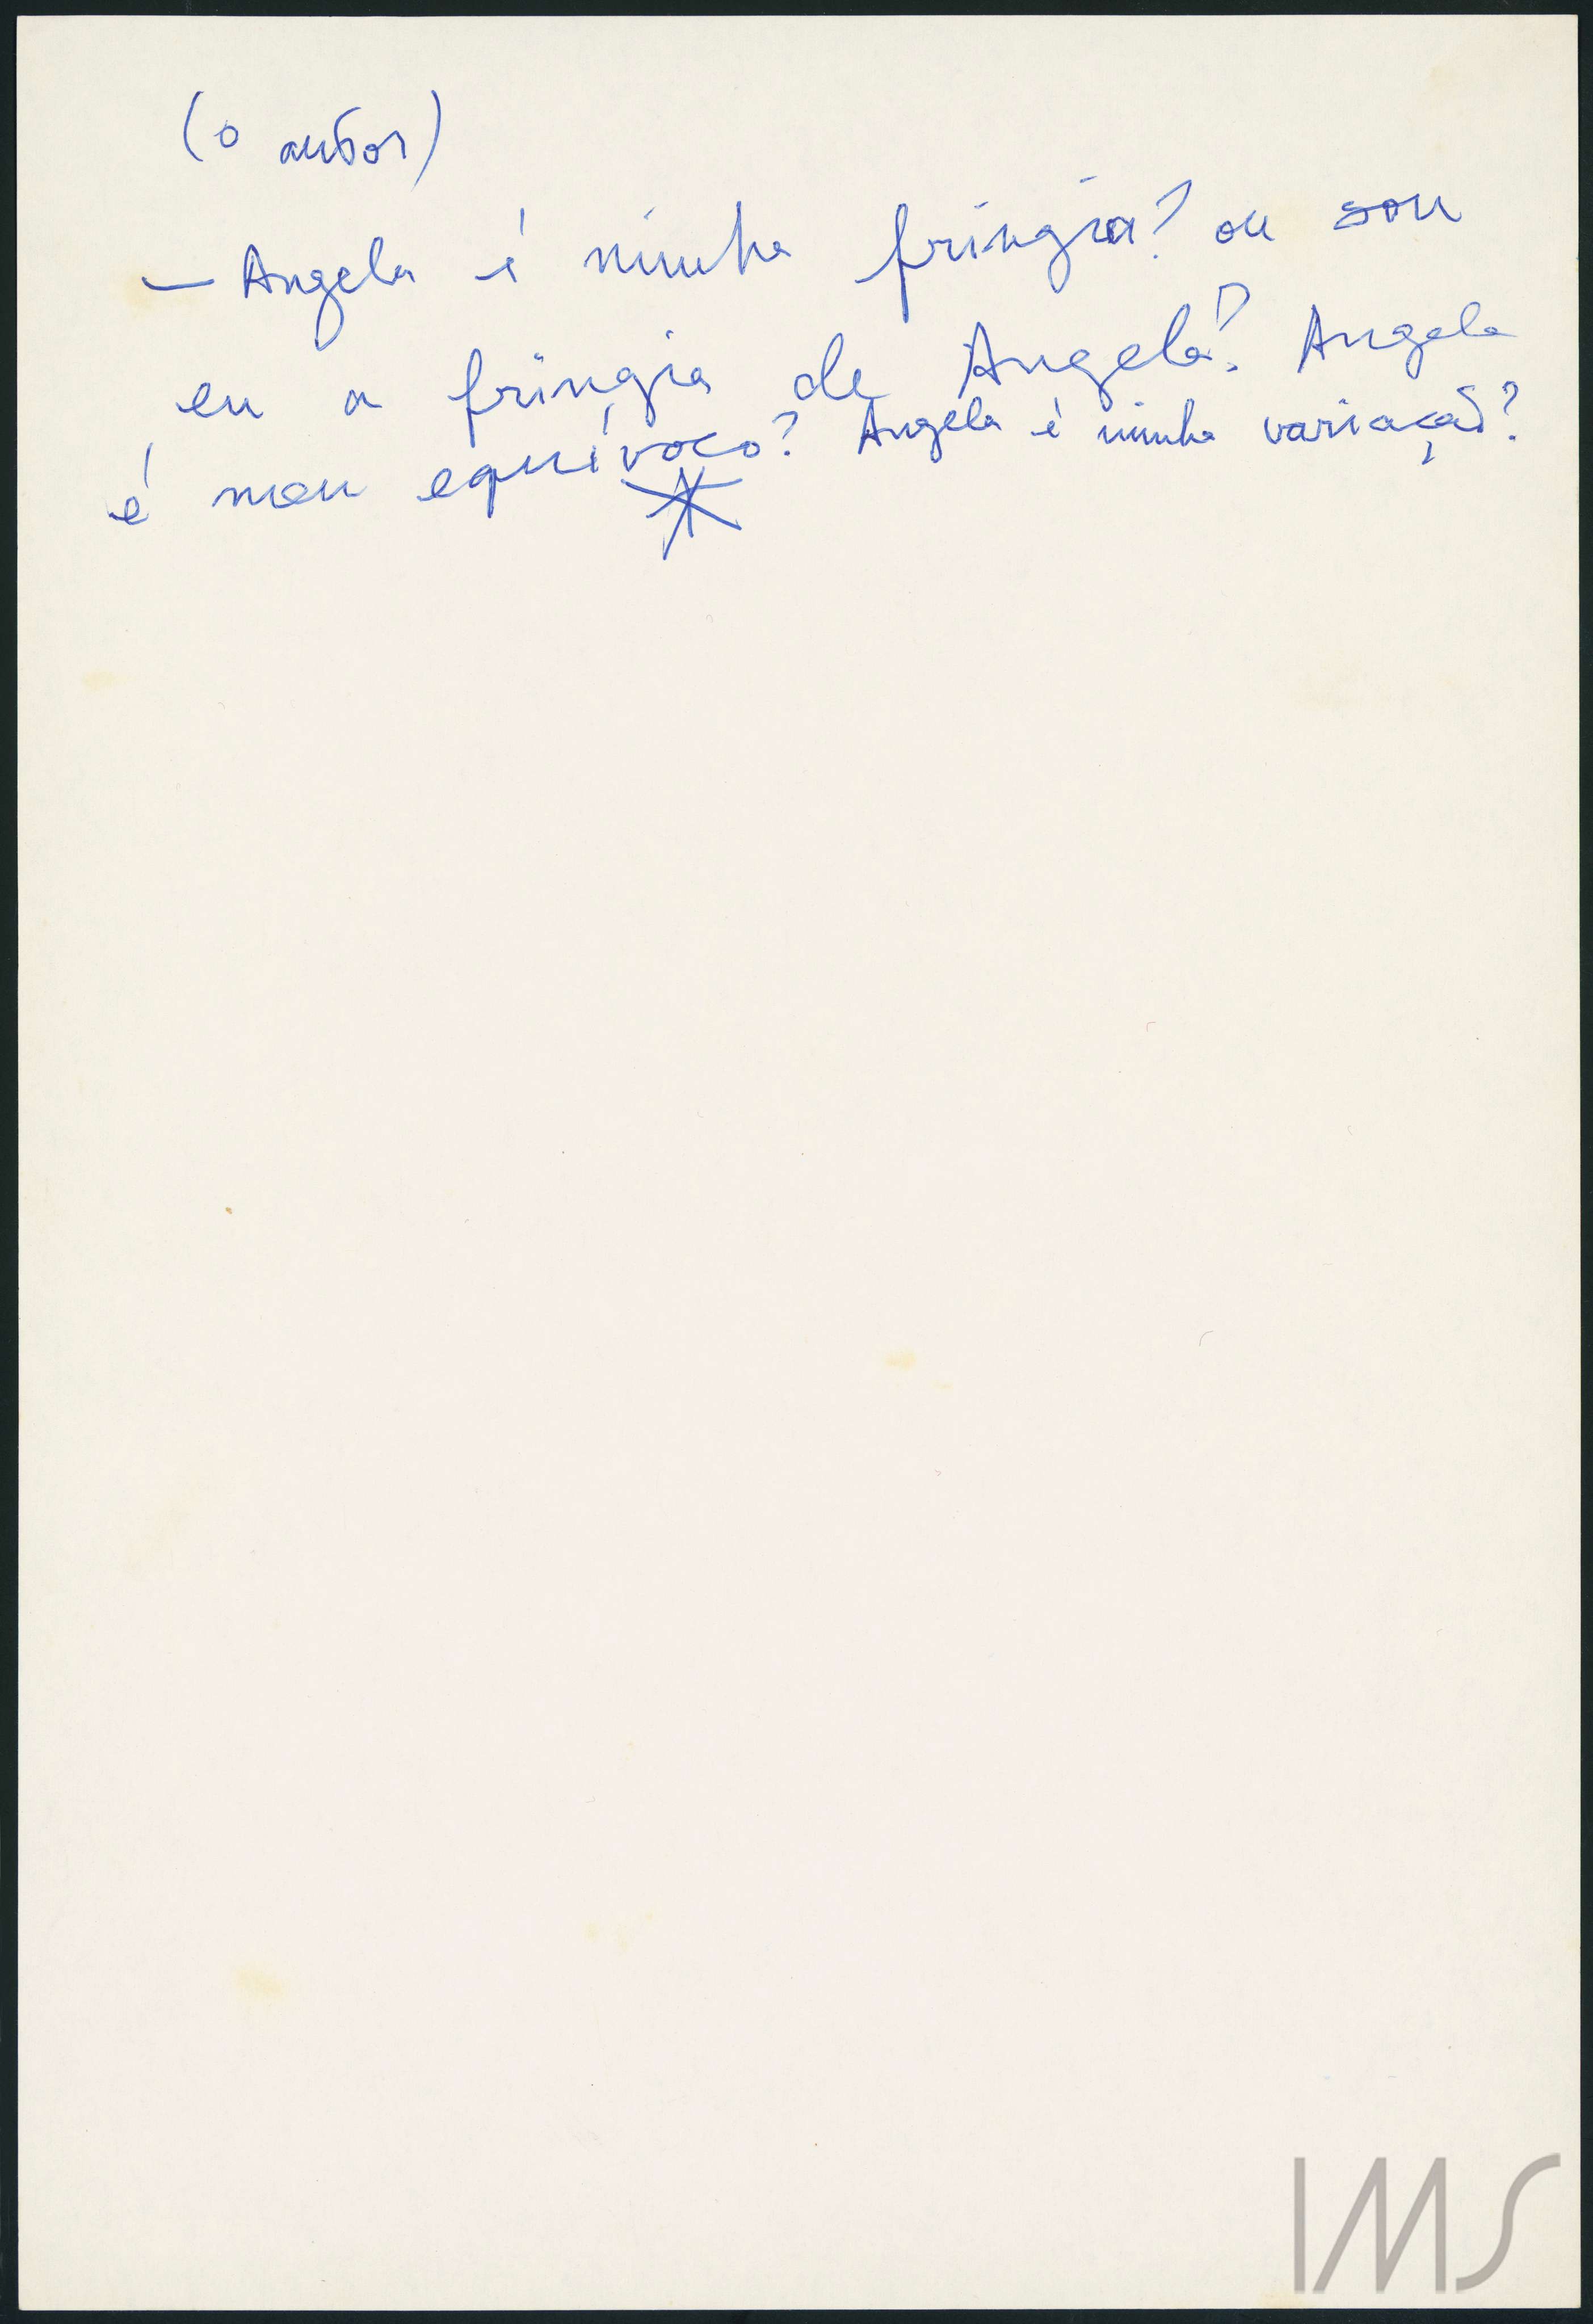 (o autor)
— Angela é minha fringia? ou sou
eu a fringia de Angela? Angela
é meu equívoco? Angela é minha variação?
*
IMS